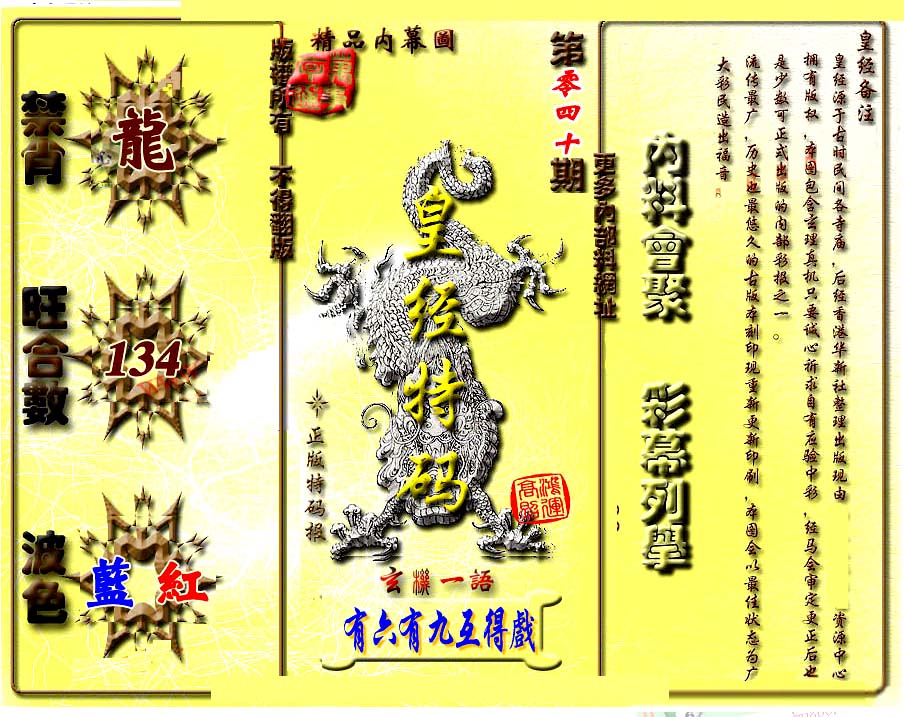 皇经备注
皇经源于古时民间各寺庙，后经香港华新社整理出版现由 资源中心
拥有版权，本图包含玄理真机只要诚心祈求自有应验中彩，经马会审定更正后也
是少数可正式出版的内部彩报之一。
流传最广，历史也最悠久的古版本刻印现重新更新印刷，本图会以最佳状态为广
大彩民造出福音
内料會聚
彩幕列舉
更多內部料網址
第零四十期
精品内幕圖
皇经特码
正版特码报
鴻運高照
玄機一語
有六有九互得戲
版權所有 不得翻版
禁肖
龍
旺合數
134
波色
藍 紅